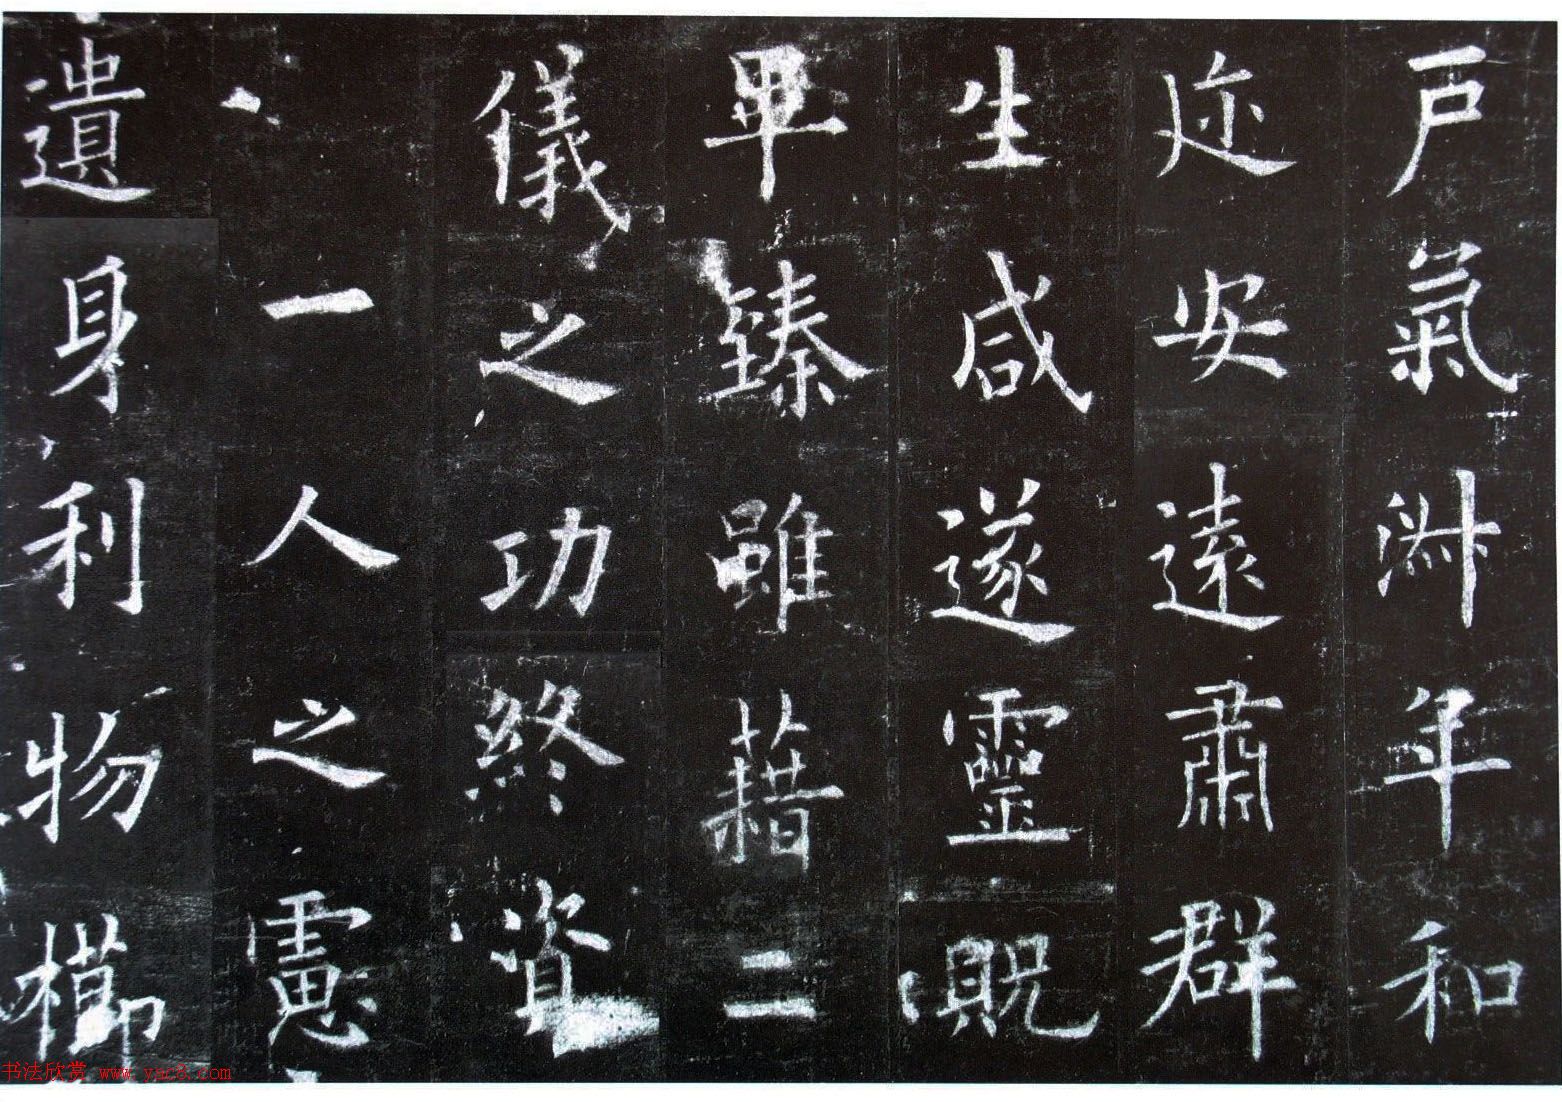 戶氣淋年和
迩安遠肅群
生咸遂靈貺
畢臻雖藉二
儀之功終資
一人之慮
遺身利物櫛
书法欣赏 www.yac8.com